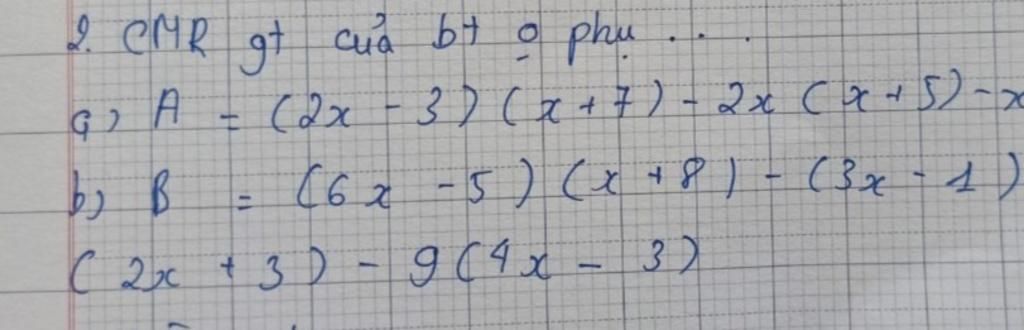 2. CMR gt của bt ọ phụ . . .
a) A = (2x - 3) (x + 7) - 2x (x + 5) - x
b) B = (6x - 5) (x + 8) - (3x - 1)
(2x + 3) - 9(4x - 3)